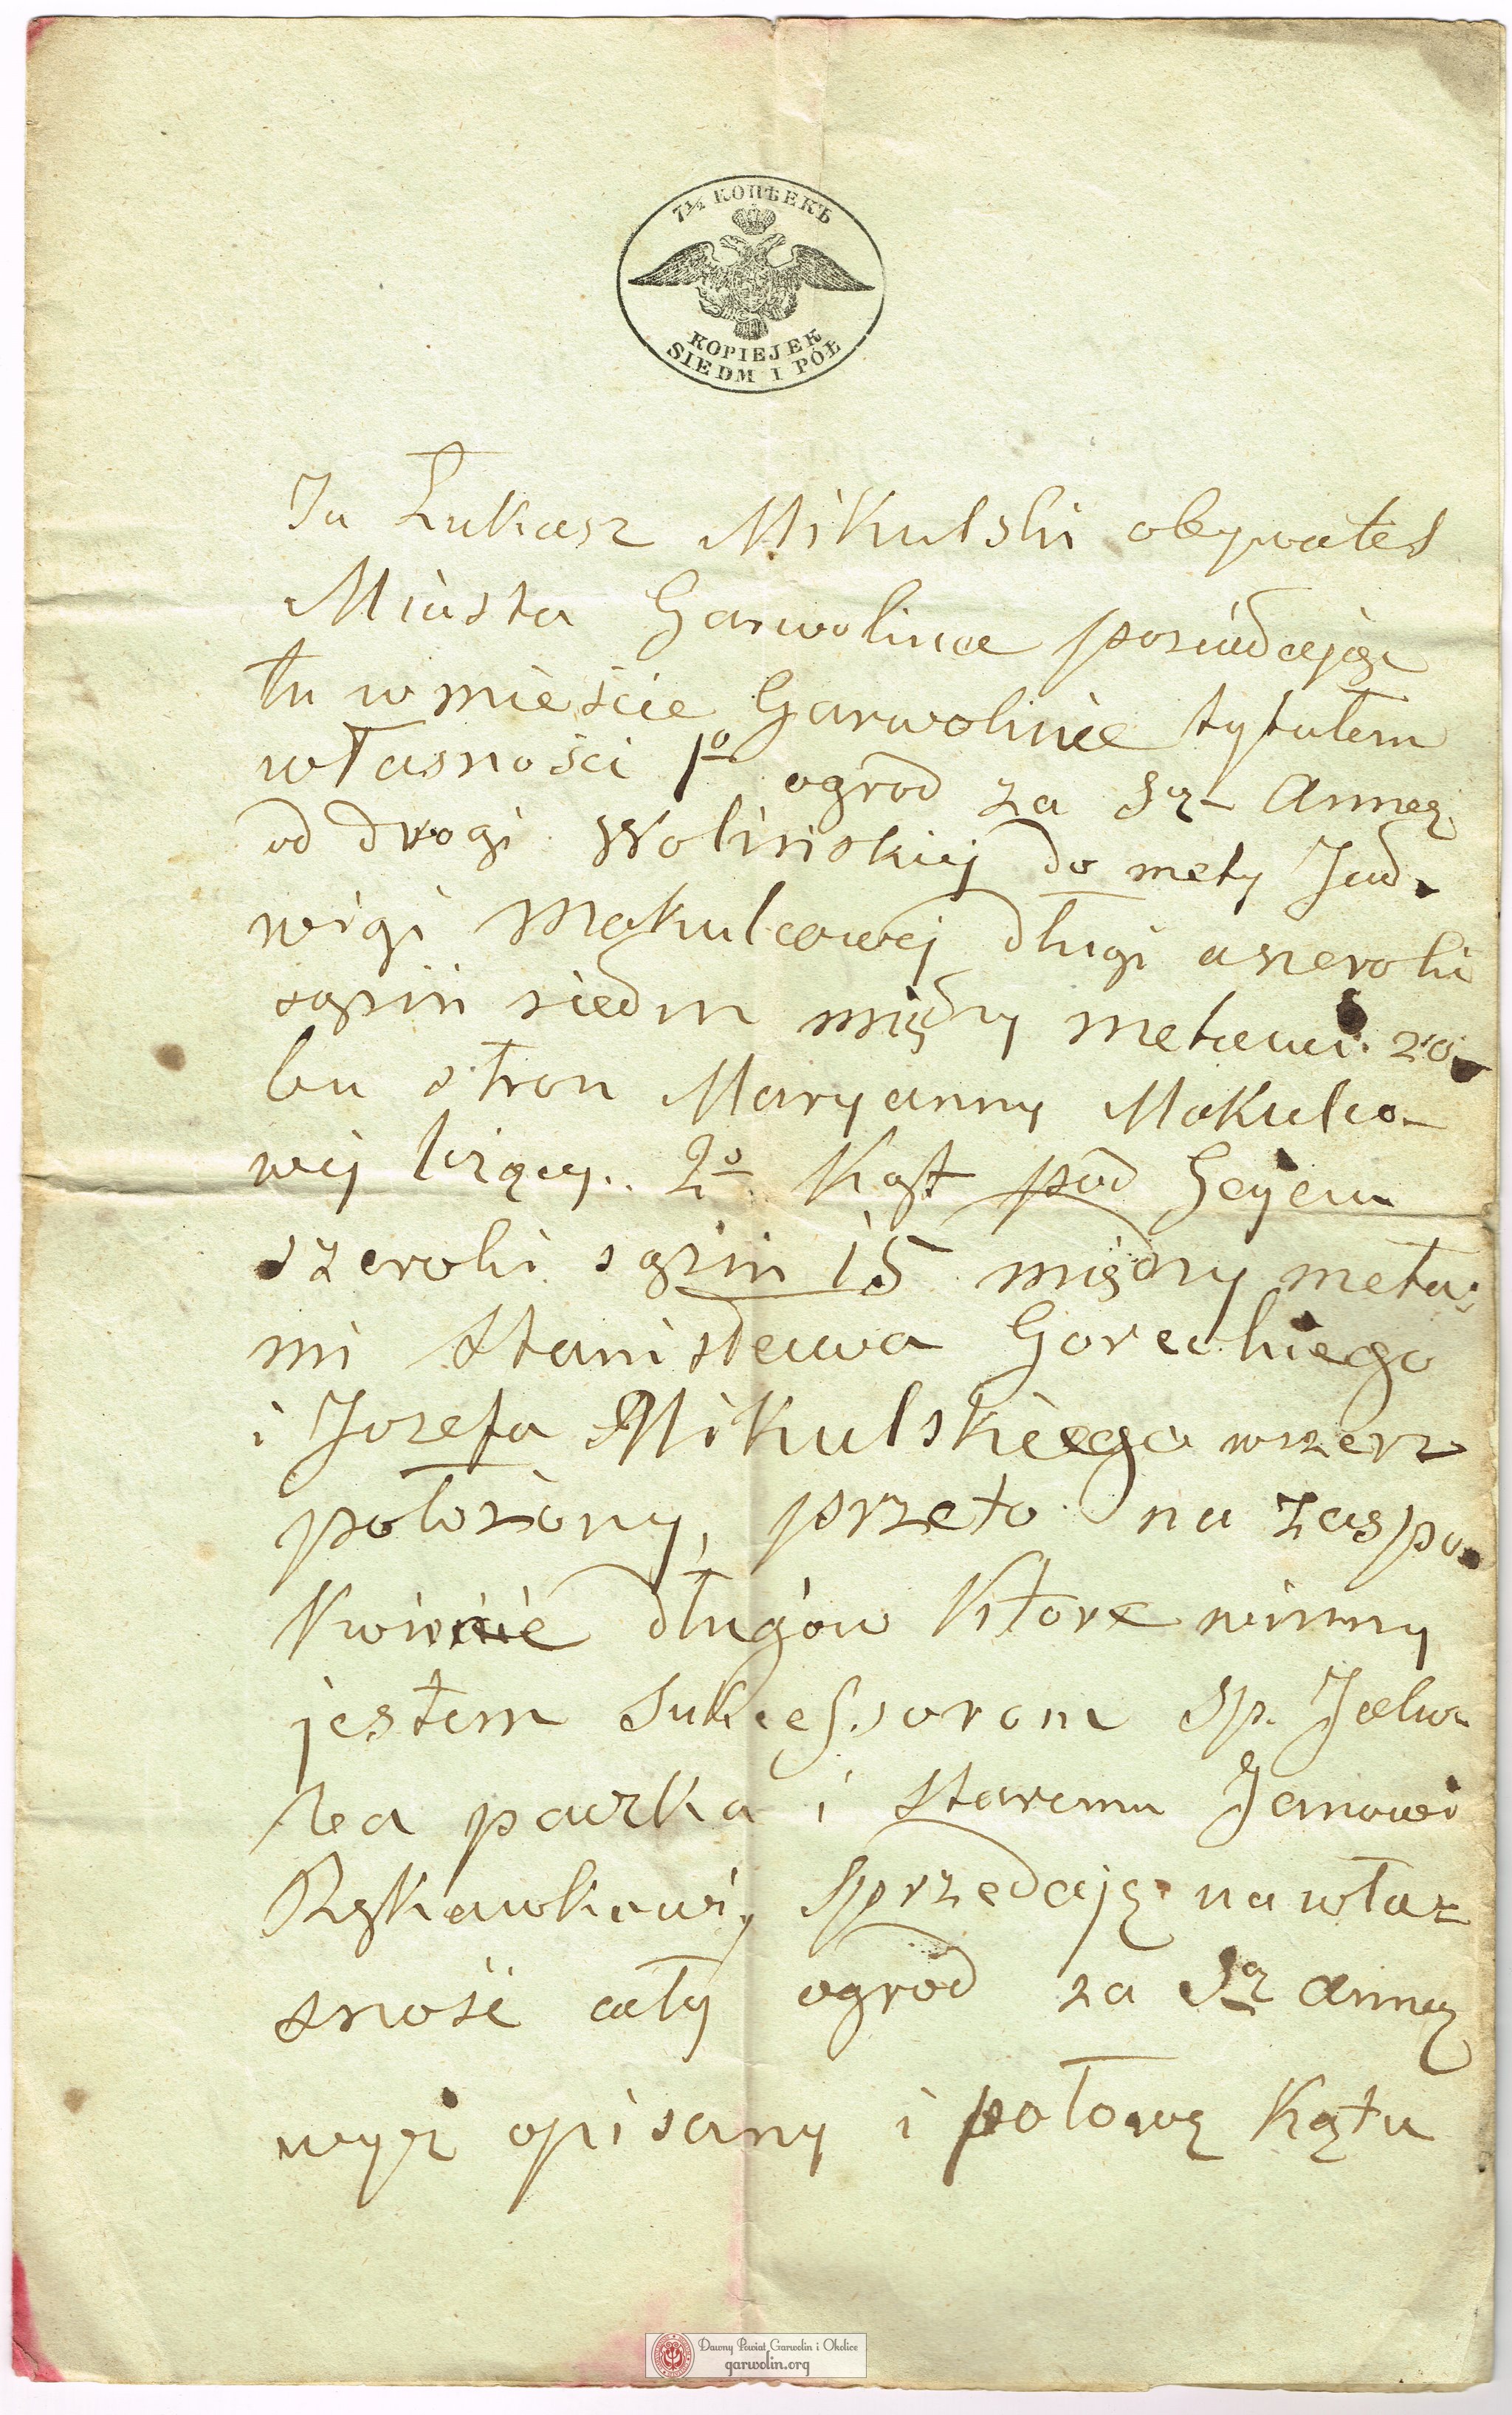 7½ КОПѢЕКЪ
KOPIEJEK
SIEDM I PÓŁ
Ja Łukasz Mikulski obywatel
Miasta Garwolina posiadając
tu w mieście Garwolinie tytułem
własności 1o ogród za Stą Anną
od drogi Wolińskiej do mety Jad-
wigi Makulcowej długi a szeroki
sążni siedm między metami zo-
bu stron Maryanny Makulco-
wej leżący.. 2o Kąt pod Gajem
szeroki sążni 15 między meta-
mi Stanisława Goreckiego
i Jozefa Mikulskiego wszerz
położony, przeto na zaspo-
kojenie długów które winny
jestem sukcessorom sp.
pawzka i staremu Janowi
Rękawkowi, sprzedaję na wła-
sność cały ogród za Stą Anną
wyż opisany i połowę Kąta
Dawny Powiat Garwolin i Okolice
garwolin.org